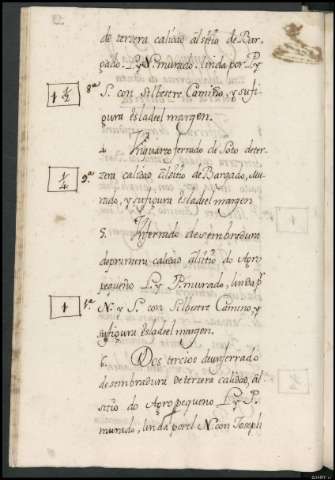 de tersera calidad al sitio de Bar-
gado. L. y N. murado linda por L. y
1 1/2 8ª S. con Silbestre Camiño, y su fi-
gura es la del margen.
4. Un quarto ferrado de Soto de ter-
1/4 9ª zera calidad al sitio de Bargado,
rado, y su figura es la del margen
5. Un ferrado de sembradura
de primera calidad al sitio do Agro
pequeño L. y P. murado, linda pr
1 1ª N. y S. con Silbestre Camino, y
su figura es la del margen.
6. Dos tercios de un ferrado
de sembradura de tersera calidad, al
sitio do Agro pequeño L. y P.
murado, linda por el N. con Joseph